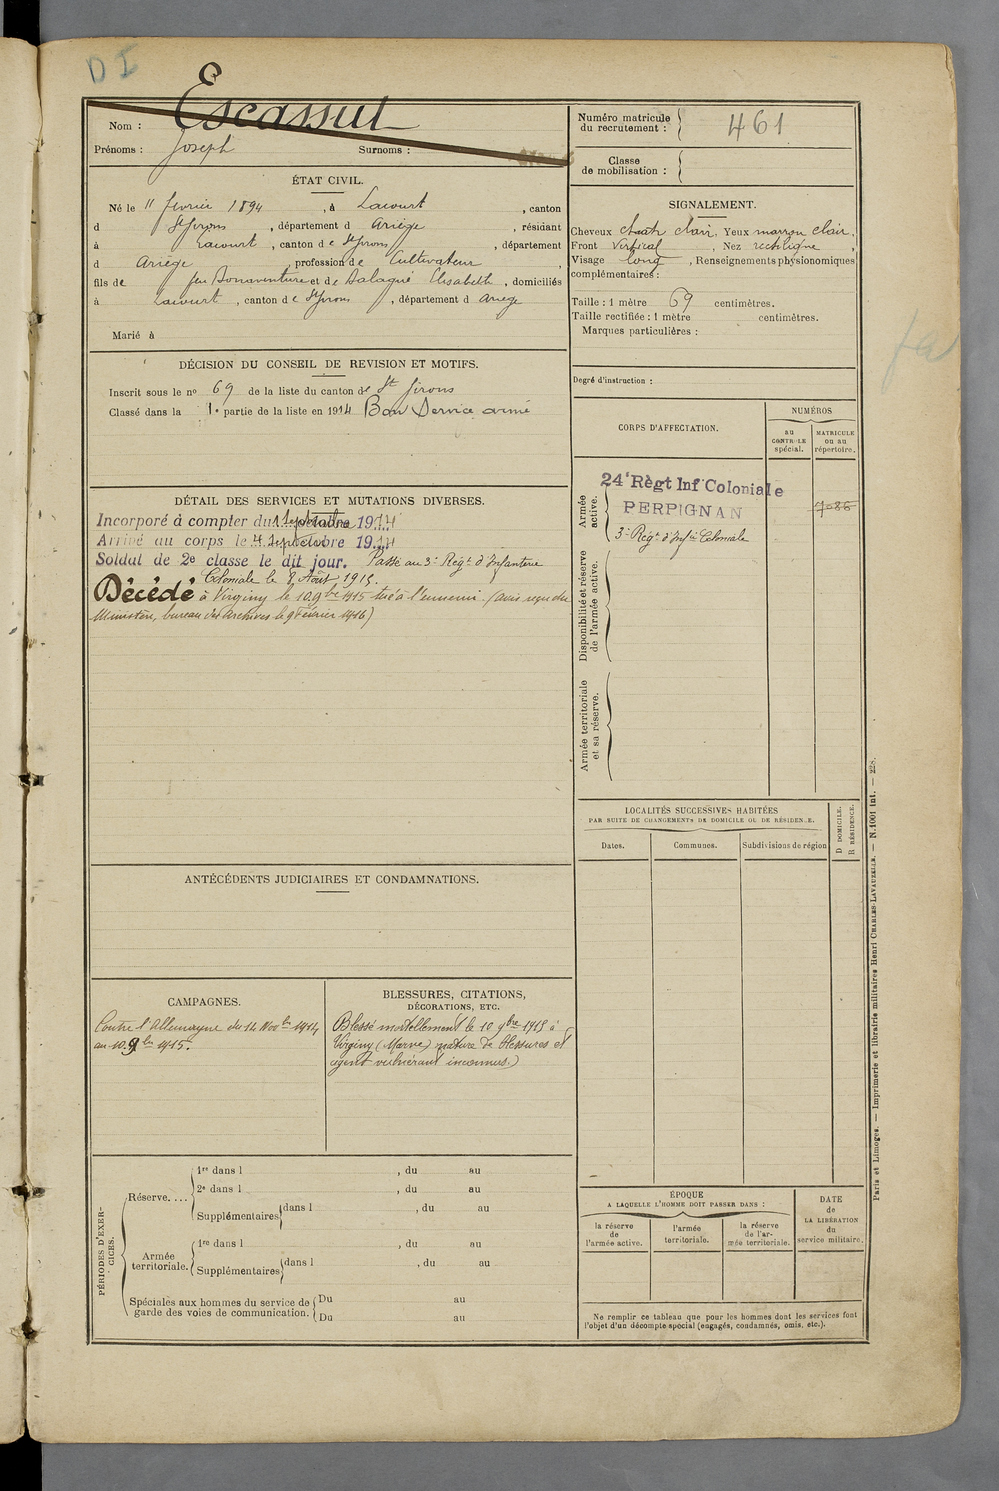 D I
Escassut
Nom :
Prénoms : Joseph Surnoms :
Numéro matricule
du recrutement : 461
Classe
de mobilisation :
ÉTAT CIVIL.
Né le 11 février 1894, à Lacourt, canton
d St Girons, département d Ariège, résidant
à Lacourt, canton de St Girons, département
d Ariège, profession de Cultivateur
fils de feu Bonaventure et de Dalagné Elisabeth, domiciliés
à Lacourt, canton de St Girons, département d Ariège
Marié à
SIGNALEMENT.
Cheveux chatn clair, Yeux marron clair,
Front Vertical, Nez rectiligne,
Visage long, Renseignements physionomiques
complémentaires :
Taille : 1 mètre 69 centimètres.
Taille rectifiée : 1 mètre centimètres.
Marques particulières :
Degré d'instruction :
DÉCISION DU CONSEIL DE REVISION ET MOTIFS.
Inscrit sous le no 69 de la liste du canton de St Girons
Classé dans la 1e partie de la liste en 1914 Bon Service armé
DÉTAIL DES SERVICES ET MUTATIONS DIVERSES.
Incorporé à compter du 1 Septembre 1914
Arrivé au corps le 4 Septembre 1914
Soldat de 2e classe le dit jour. Passé au 3e Régt d'Infanterie
Coloniale le 8 Août 1915.
Décédé à Virginy le 10 9bre 1915 tué à l'ennemi. (avis reçu du
Ministère, bureau des Archives le 9 Février 1916)
CORPS D'AFFECTATION.
NUMÉROS
au
CONTROLE
spécial.
MATRICULE
ou au
répertoire.
Armée
active.
24e Règt Inf Coloniale
PERPIGNAN
7086
3e Régt d'Infie Coloniale
Disponibilité et réserve
de l'armée active.
Armée territoriale
et sa réserve.
LOCALITÉS SUCCESSIVES HABITÉES
PAR SUITE DE CHANGEMENTS DE DOMICILE OU DE RÉSIDENCE.
Dates.
Communes.
Subdivisions de région
D DOMICILE.
R RÉSIDENCE.
ANTÉCÉDENTS JUDICIAIRES ET CONDAMNATIONS.
CAMPAGNES.
Contre l'Allemagne du 14 Novbre 1914
au 10 9bre 1915.
BLESSURES, CITATIONS,
DÉCORATIONS, ETC.
Blessé mortellement le 10 9bre 1915 à
Virginy (Marne) nature de blessures et
agent vulnérant inconnus.)
PÉRIODES D'EXER-
CICES.
Réserve....
1re dans l , du au
2e dans l , du au
Supplémentaires dans l , du au
Armée
territoriale.
1re dans l , du au
Supplémentaires dans l , du au
Spéciales aux hommes du service de
garde des voies de communication.
Du au
Du au
ÉPOQUE
A LAQUELLE L'HOMME DOIT PASSER DANS :
la réserve
de
l'armée active.
l'armée
territoriale.
la réserve
de l'ar-
mée territoriale.
DATE
de
LA LIBÉRATION
du
service militaire.
Ne remplir ce tableau que pour les hommes dont les services font
l'objet d'un décompte spécial (engagés, condamnés, omis, etc.).
Paris et Limoges. — Imprimerie et librairie militaires Henri CHARLES-LAVAUZELLE. — N. 1001 int. — 228.